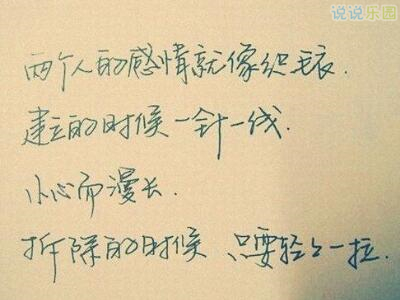 说说乐园
两个人的感情就像织毛衣.
建立的时候一针一线.
小心而漫长.
拆除的时候、只要轻轻一拉.